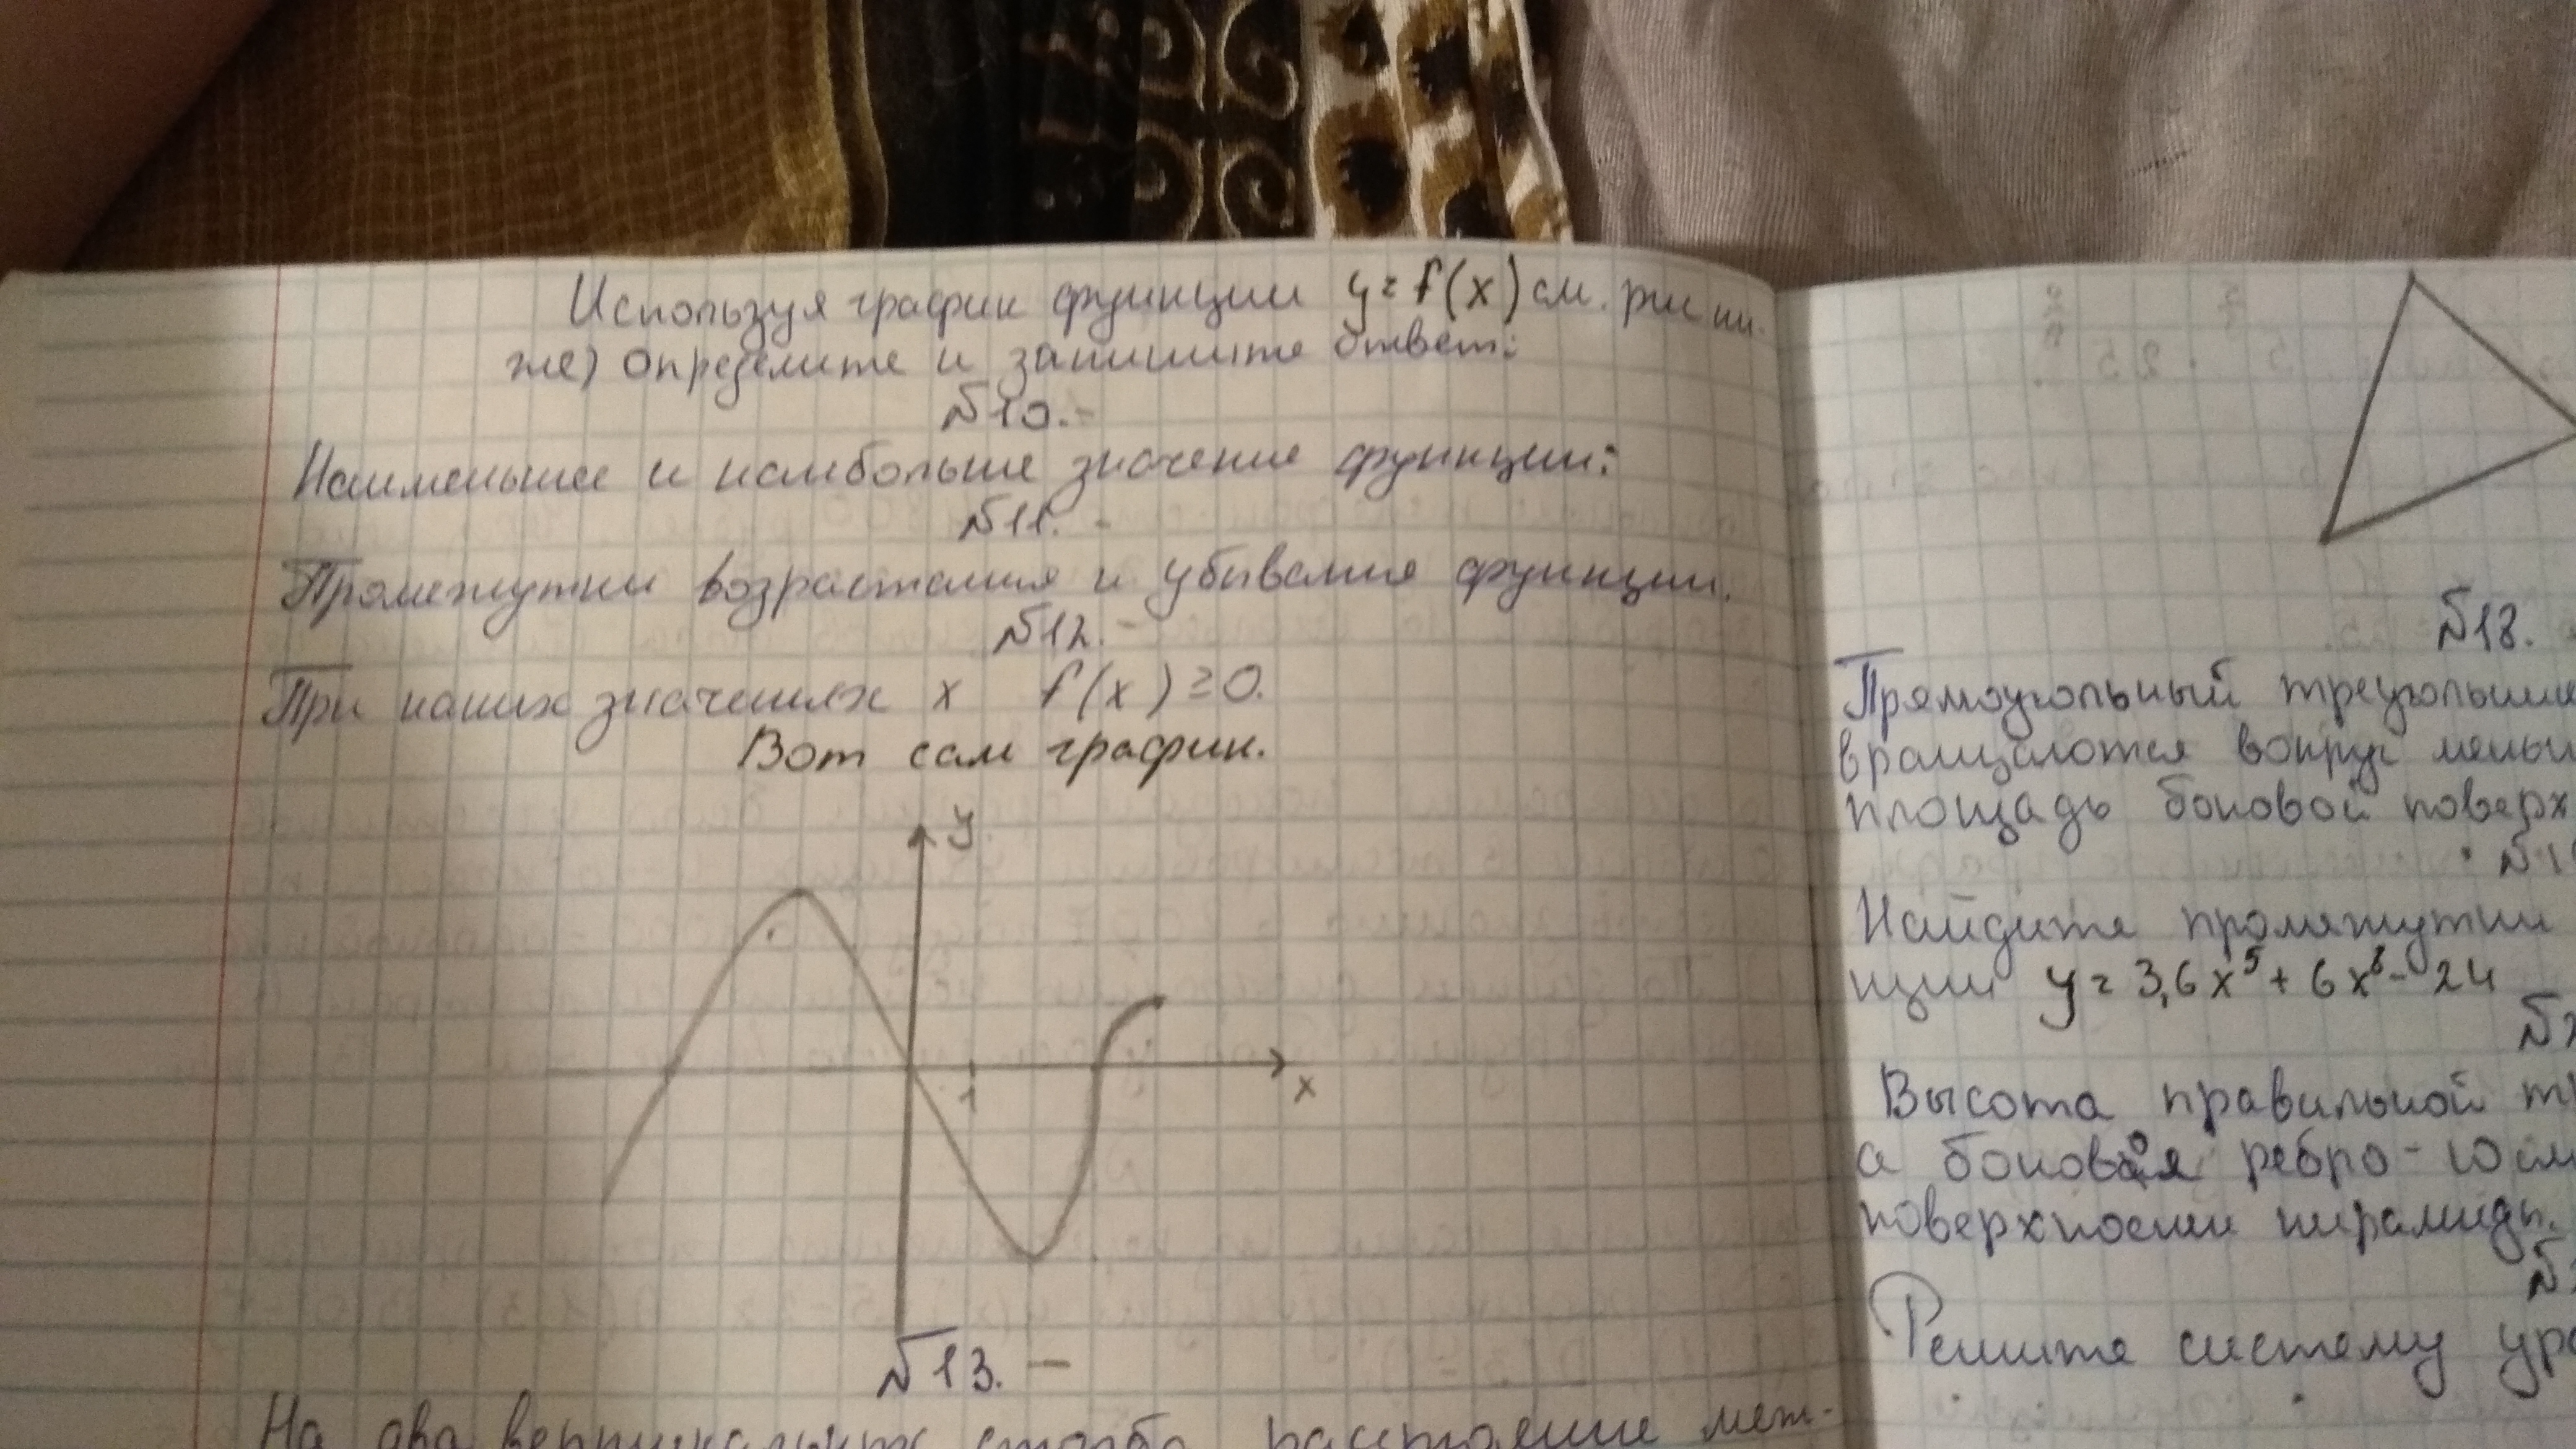 Используя график функции y = f(x) см. рис ни-
же) определите и запишите ответ:
№10. -
Наименьшее и наибольше значение функции:
№11. -
Промежутки возрастания и убывания функции.
№12. -
При каких значениях x f(x) ≥ 0.
Вот сам график.
y
1
x
№13. -
На два вертикальных столба расстояние меж-
№18.
Прямоугольный треугольник
вращаются вокруг меньш
площадь боковой поверх
Найдите промежутки
нции y = 3,6x⁵ + 6x⁶ - 24
Высота правильной
а боковая ребро - 10 см
поверхности пирамиды.
Решите систему ура